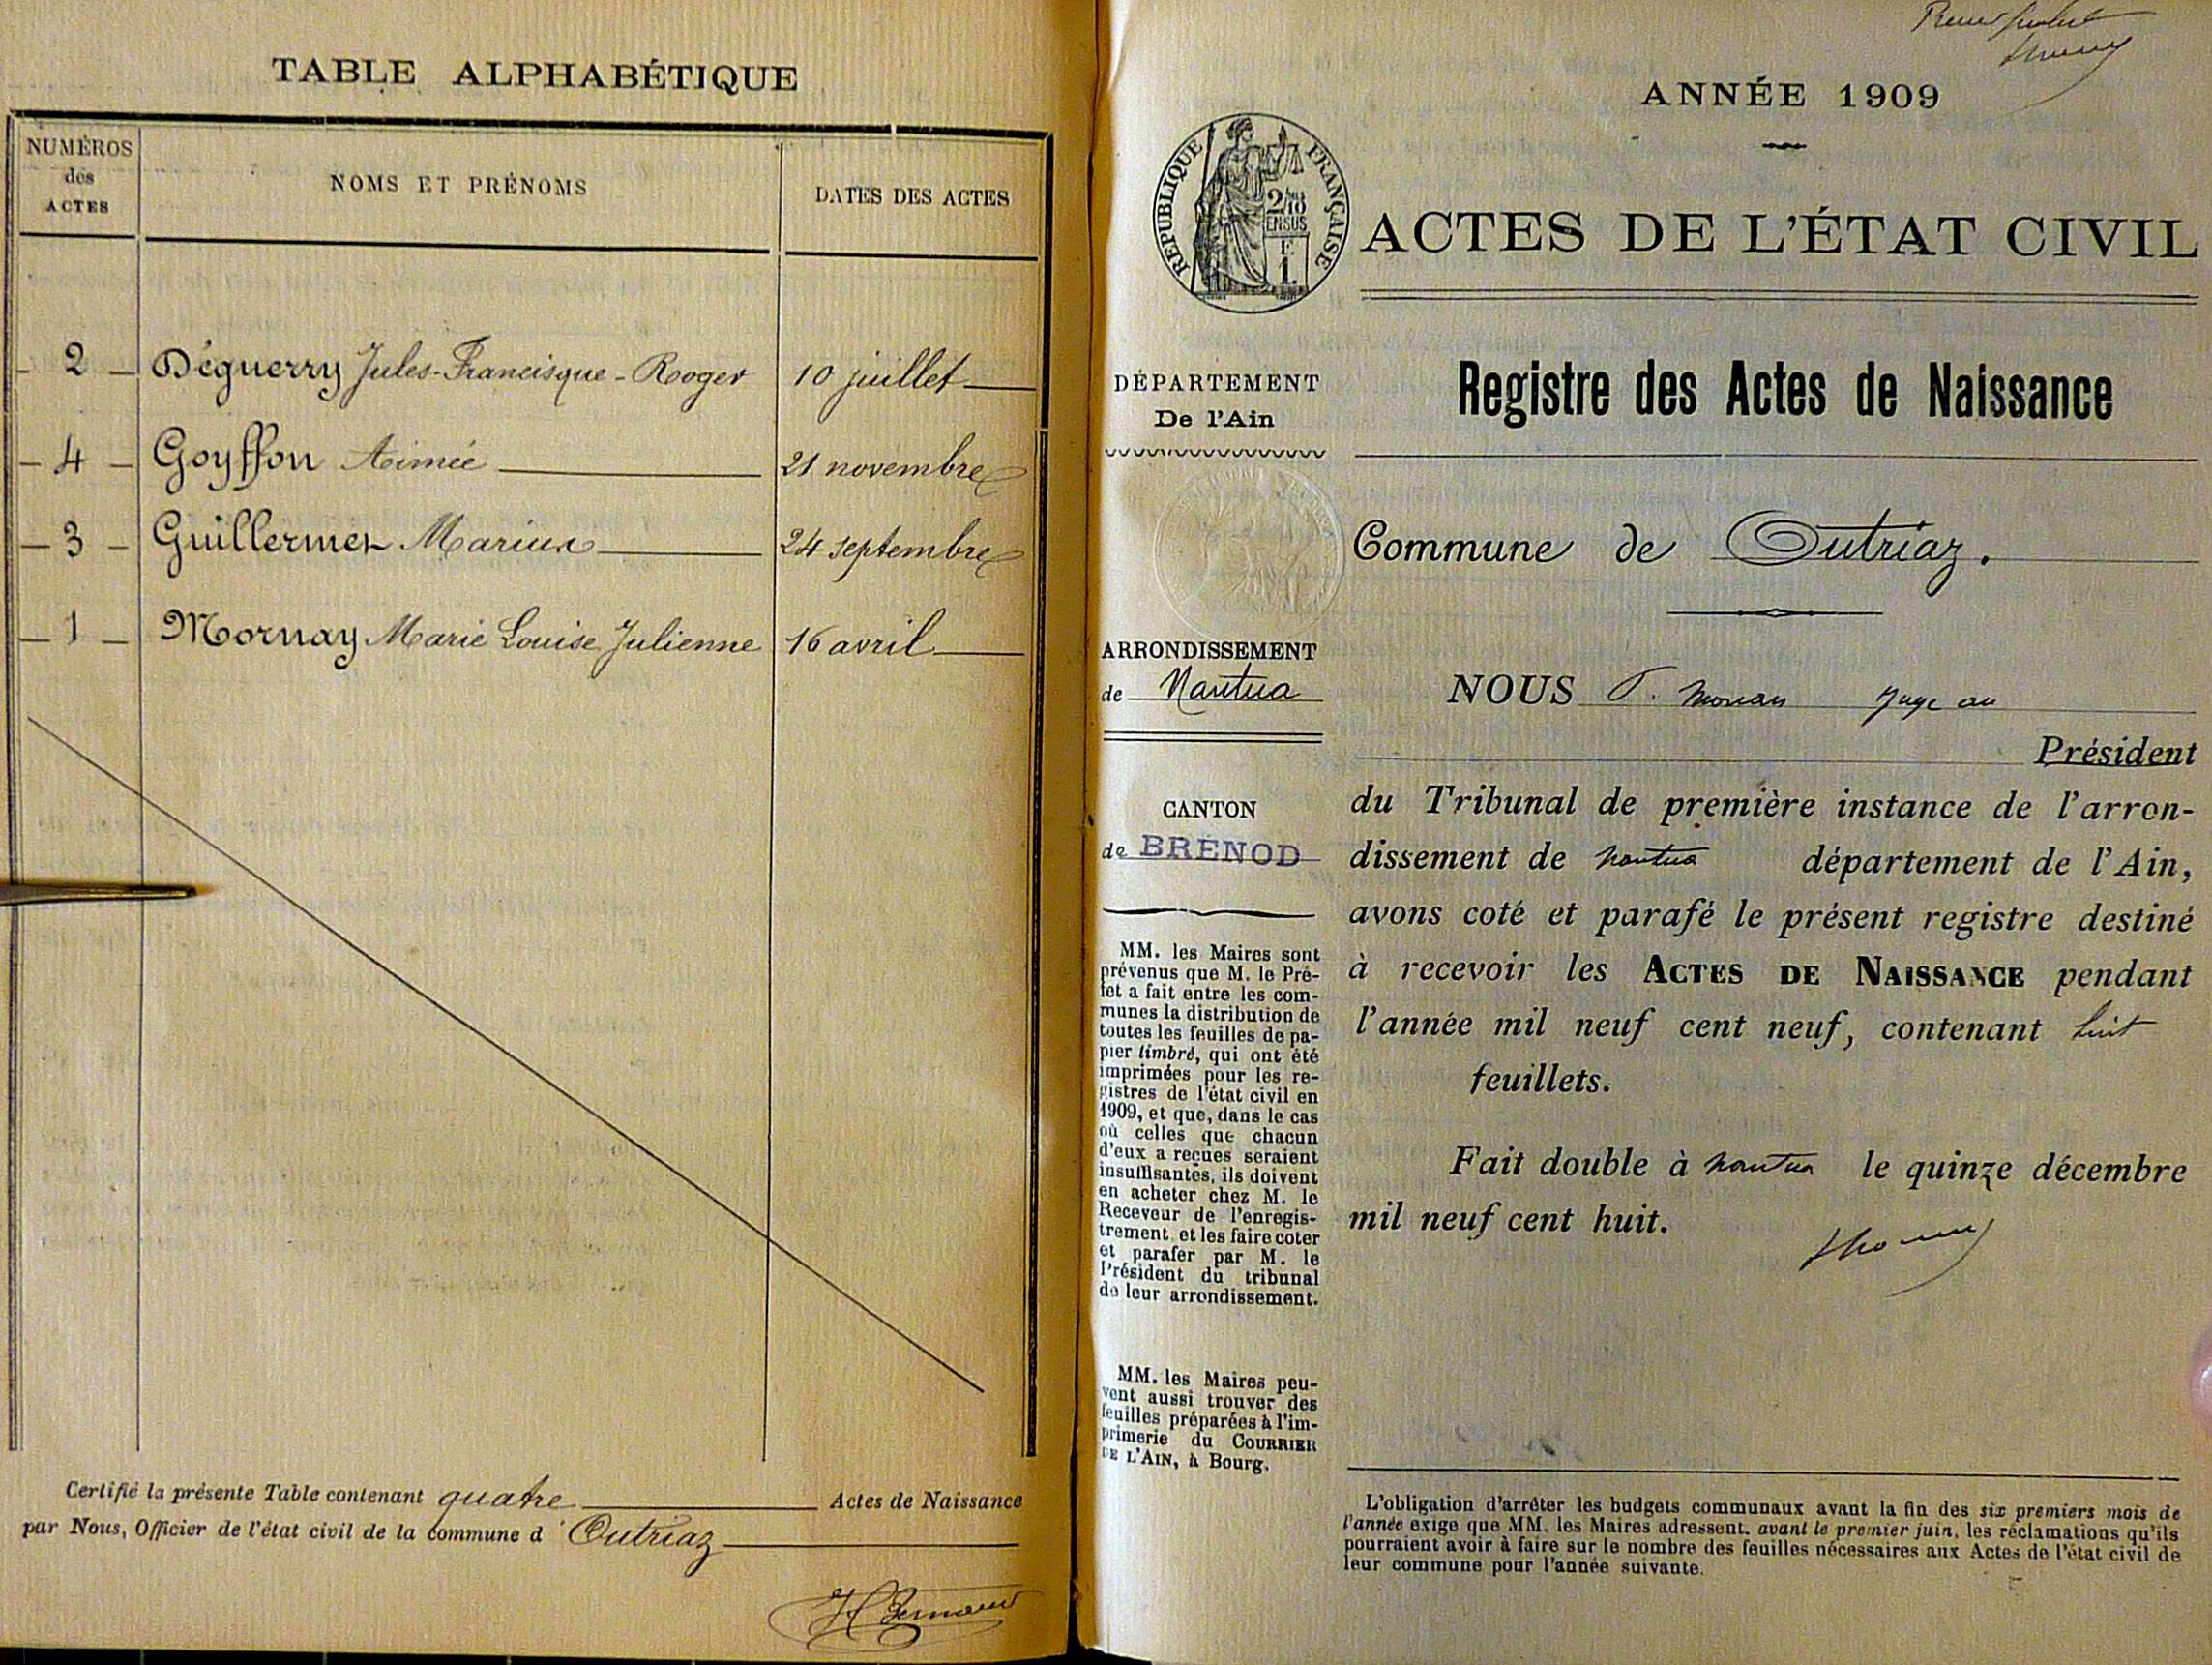 TABLE ALPHABÉTIQUE
NUMÉROS
des
ACTES
NOMS ET PRÉNOMS
DATES DES ACTES
2 Déguerry Jules-Francisque-Roger 10 juillet
4 Goyffon Aimée 21 novembre
3 Guillermet Marius 24 septembre
1 Mornay Marie Louise Julienne 16 avril
Certifié la présente Table contenant quatre Actes de Naissance
par Nous, Officier de l'état civil de la commune d'Outriaz
ANNÉE 1909
RÉPUBLIQUE FRANÇAISE
ACTES DE L'ÉTAT CIVIL
DÉPARTEMENT
De l'Ain
ARRONDISSEMENT
de Nantua
CANTON
de BRÉNOD
MM. les Maires sont
prévenus que M. le Pré-
fet a fait entre les com-
munes la distribution de
toutes les feuilles de pa-
pier timbré, qui ont été
imprimées pour les re-
gistres de l'état civil en
1909, et que, dans le cas
où celles que chacun
d'eux a reçues seraient
insuffisantes, ils doivent
en acheter chez M. le
Receveur de l'enregis-
trement et les faire coter
et parafer par M. le
Président du tribunal
de leur arrondissement.
MM. les Maires peu-
vent aussi trouver des
feuilles préparées à l'im-
primerie du COURRIER
DE L'AIN, à Bourg.
Registre des Actes de Naissance
Commune de Outriaz.
NOUS Juge au
Président
du Tribunal de première instance de l'arron-
dissement de Nantua département de l'Ain,
avons coté et parafé le présent registre destiné
à recevoir les ACTES DE NAISSANCE pendant
l'année mil neuf cent neuf, contenant huit
feuillets.
Fait double à Nantua le quinze décembre
mil neuf cent huit.
L'obligation d'arrêter les budgets communaux avant la fin des six premiers mois de
l'année exige que MM. les Maires adressent, avant le premier juin, les réclamations qu'ils
pourraient avoir à faire sur le nombre des feuilles nécessaires aux Actes de l'état civil de
leur commune pour l'année suivante.